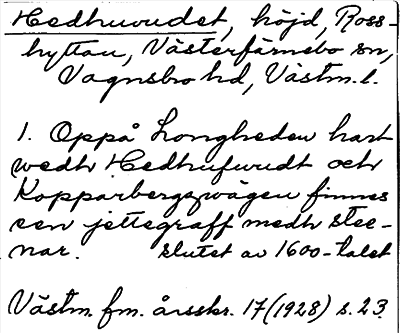 Hedhuvudet, höjd, Ross-
hyttan, Västerfärnebo sn,
Vagnsbro hd, Västm. l.
1. Oppå Longheden hart
wedh Hedhufwudt och
Kopparbergzwägen finnes
een jettegraff medh stee-
nar. slutet av 1600-talet
Västm. fm. årsskr. 17 (1928) s. 23.